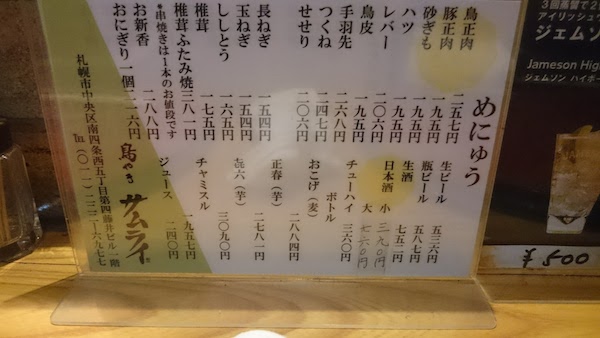 めにゅう
鳥正肉 二五七円
豚正肉 一九五円
砂ぎも 一九五円
ハツ 一九五円
レバー 二〇六円
鳥皮 一九五円
手羽先 二六八円
つくね 二四七円
せせり 二〇六円
長ねぎ 一五四円
玉ねぎ 一五四円
ししとう 一六五円
椎茸 一七五円
椎茸ふたみ焼 三八一円
*串焼きは1本のお値段です
お新香 二八八円
おにぎり一個 二一六円
生ビール 五三六円
瓶ビール 五八七円
生酒 七五二円
日本酒 小 三九〇円
大 七六〇円
チューハイ 三六〇円
ボトル
おこげ(麦) 二八八四円
正春(芋) 二七八一円
㐂六(芋) 三〇九〇円
チャミスル 一九五七円
ジュース 二四〇円
鳥やき サムライ
札幌市中央区南四条西五丁目第四藤井ビル一階
3回蒸留で2
アイリッシュウ
ジェムソ
Jameson High
ジェムソン ハイボー
¥500